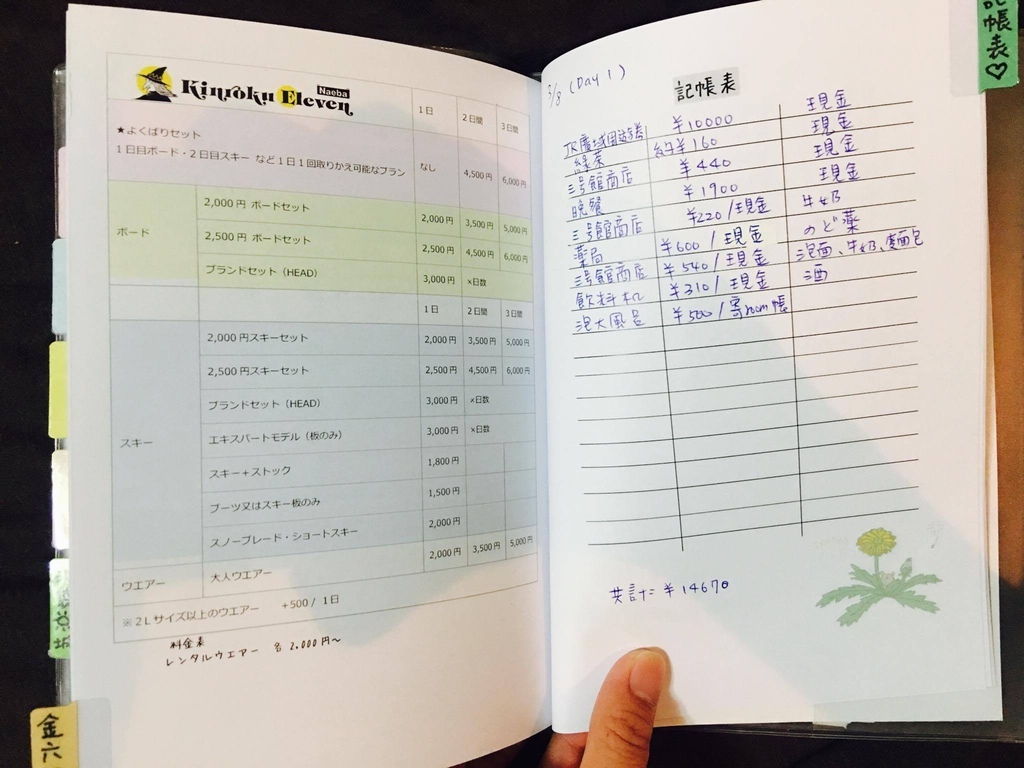 Kinroku Eleven Naeba 1日 2日間 3日間
★よくばりセット
1日目ボード・2日目スキー など1日1回取りかえ可能なプラン なし 4,500円 6,000円
ボード
2,000円 ボードセット 2,000円 3,500円 5,000円
2,500円 ボードセット 2,500円 4,500円 6,000円
ブランドセット（HEAD） 3,000円 ×日数
1日 2日間 3日間
スキー
2,000円スキーセット 2,000円 3,500円 5,000円
2,500円スキーセット 2,500円 4,500円 6,000円
ブランドセット（HEAD） 3,000円 ×日数
エキスパートモデル（板のみ） 3,000円 ×日数
スキー＋ストック 1,800円
ブーツ又はスキー板のみ 1,500円
スノーブレード・ショートスキー 2,000円
ウエアー 大人ウエアー 2,000円 3,500円 5,000円
※2Lサイズ以上のウエアー +500/ 1日
料金表
レンタルウエアー 各 2.000円～
金六
3/8 (Day 1)
記帳表
記帳表♡
JR廣域周遊券 ¥10000 現金
綠茶 約¥160 現金
三号館商店 ¥440 現金
晚餐 ¥1900 現金
三号館商店 ¥220/現金 牛奶
藥局 ¥600 / 現金 のど薬
三號館商店 ¥540/ 現金 泡面、牛奶、麵包
飲料机 ¥310/ 現金 酒
泡大風呂 ¥500/寄room帳
共計= ¥14670